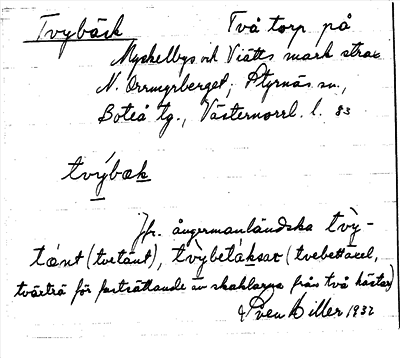 Tvybäck Två torp på
Myckelbys och Viätts mark strax
N. Orrmyrberget, Styrnäs sn.,
Boteå tg., Västernorrl. l. 83
tvýbæk
Jfr. ångermanländska tvỳ-
tǿnt (tvetänt), tvỳbetáksar (tvebettaxel,
tvärträ för fortsättande av skaklarna från två hästar)
Sven Hiller 1932